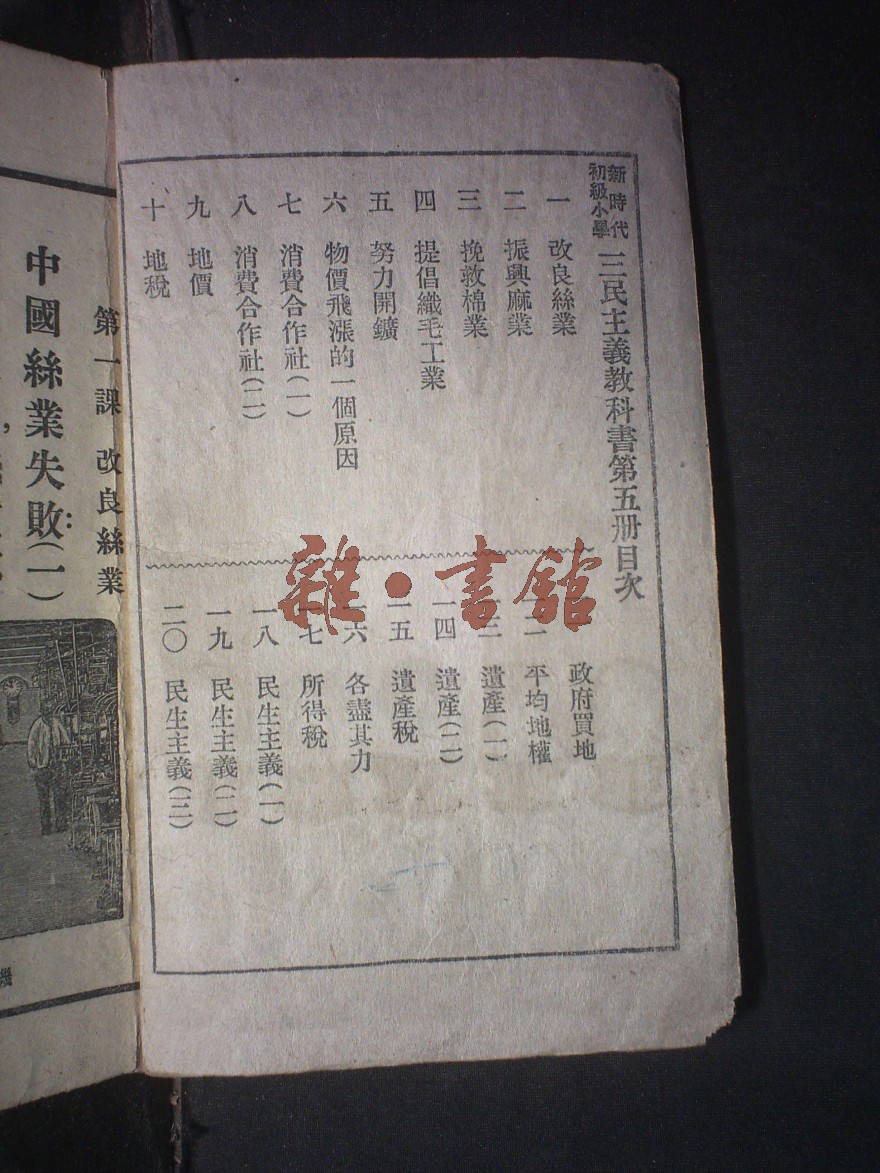 新時代
初級小學
三民主義教科書第五册目次
一 改良絲業
二 振興麻業
三 挽救棉業
四 提倡織毛工業
五 努力開鑛
六 物價飛漲的一個原因
七 消費合作社(一)
八 消費合作社(二)
九 地價
十 地稅
政府買地
平均地權
遺產(一)
一四 遺產(二)
一五 遺產稅
一六 各盡其力
一七 所得稅
一八 民生主義(一)
一九 民生主義(二)
二〇 民生主義(三)
雜·書館
第一課 改良絲業
中國絲業失敗:(一)
機